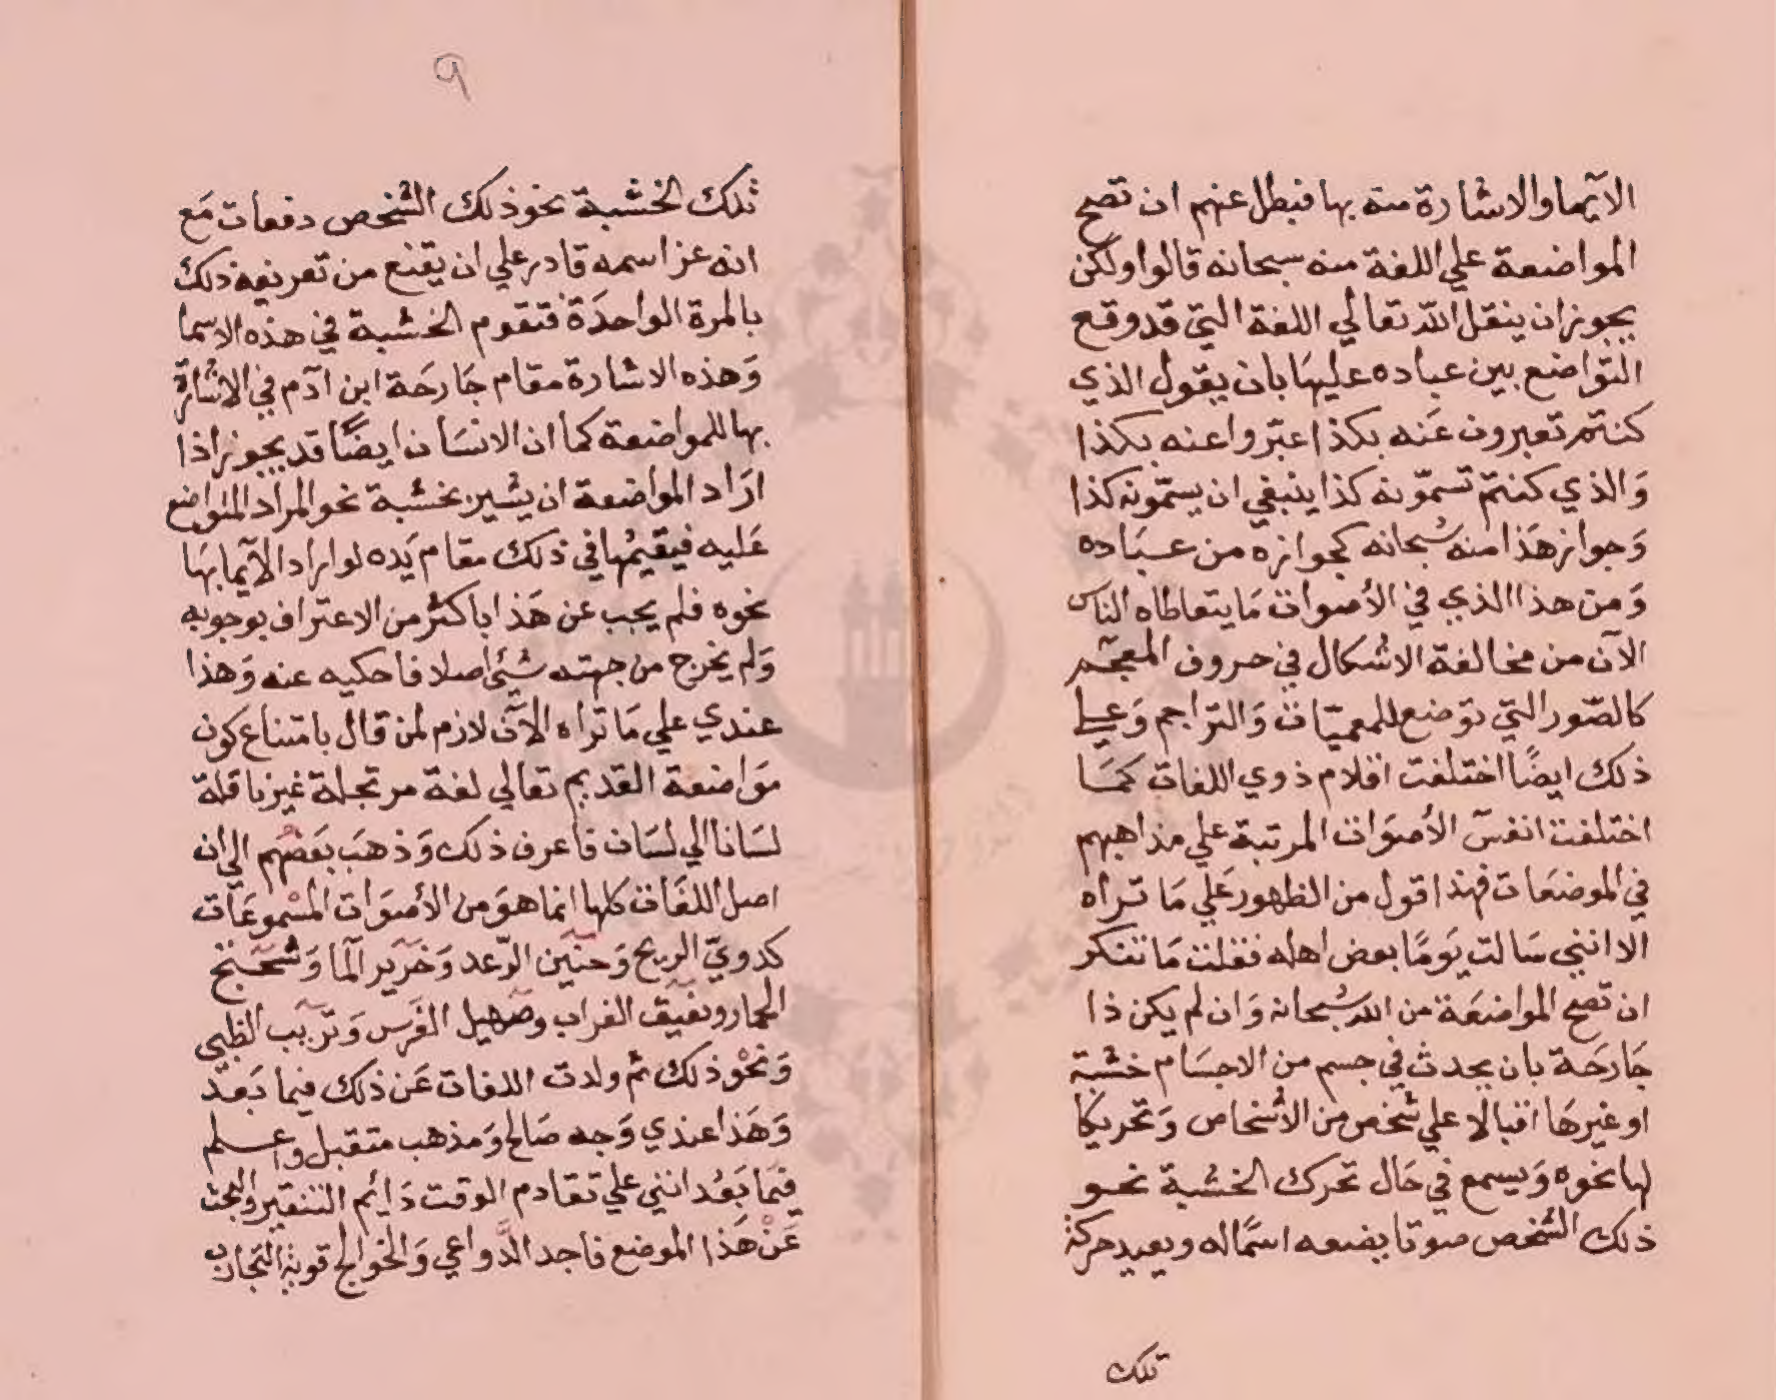 الآيما والاشارة منه بها فبطل عنهم ان تصح
المواضعة علي اللغة منه سبحانه قالوا ولكن
يجوز ان ينقل الله تعالي اللغة التي قد وقع
التواضع بين عباده عليها بان يقول الذي
كنتم تعبرون عنه بكذا عبّروا عنه بكذا
والذي كنتم تسمّونه كذا ينبغي ان يسمّونه كذا
وجواز هذا منه سبحانه كجوازه من عباده
ومن هذا الذي في الأصوات ما يتعاطاه الناس
الآن من مخالفة الاشكال في حروف المعجم
كالصّور التي توضع للمعميّات والتراجم وعلي
ذلك ايضًا اختلفت اقلام ذوي اللغات كما
اختلفت انفس الأصوات المرتبة علي مذاهبهم
في الموضعات فهذا قول من الظهور علي ما تراه
الا انني سالت يومًا بعض اهله فقلت ما تنكر
ان تصح المواضعة من الله سبحانه وان لم يكن ذا
جارحة بان يحدث في جسم من الاجسام خشبة
او غيرها اقبالا علي شخص من الأشخاص وتحريكا
لها نحوه ويسمع في حال تحرك الخشبة نحو
ذلك الشخص صوتا يضعه اسمًا له ويعيد حركة
تلك
٩
تلك الخشبة نحو ذلك الشخص دفعات مع
انه عز اسمه قادر علي ان يقنع من تعريفه ذلك
بالمرة الواحدة فتقوم الخشبة في هذه الاسما
وهذه الاشارة مقام جارحة ابن آدم في الاشارة
بها للمواضعة كما ان الانسان ايضًا قد يجوز اذا
اراد المواضعة ان يشير بخشبة نحو المراد المتواضع
عليه فيقيمها في ذلك مقام يده لو اراد الآيما بها
نحوه فلم يجب عن هذا باكثر من الاعتراف بوجوبه
ولم يخرج من جهته شيئ اصلا فاحكيه عنه وهذا
عندي علي ما تراه الآن لازم لمن قال بامتناع كون
مواضعة القديم تعالي لغة مرتجلة غير ناقلة
لسانا الي لسان فاعرف ذلك وذهب بعضهم الي ان
اصل اللغات كلها انما هو من الأصوات المسموعات
كدويّ الريح وحنين الرّعد وخرير الما وشحيج
الحمار ونعيق الغراب وصهيل الفرس ونزيب الظبي
ونحو ذلك ثم ولدت اللغات عن ذلك فيما بعد
وهذا عندي وجه صالح ومذهب متقبل واعلم
فيما بعد انني علي تقادم الوقت دائم التنقير والبحث
عن هذا الموضع فاجد الدّواعي والخوالج قوية التجاذب